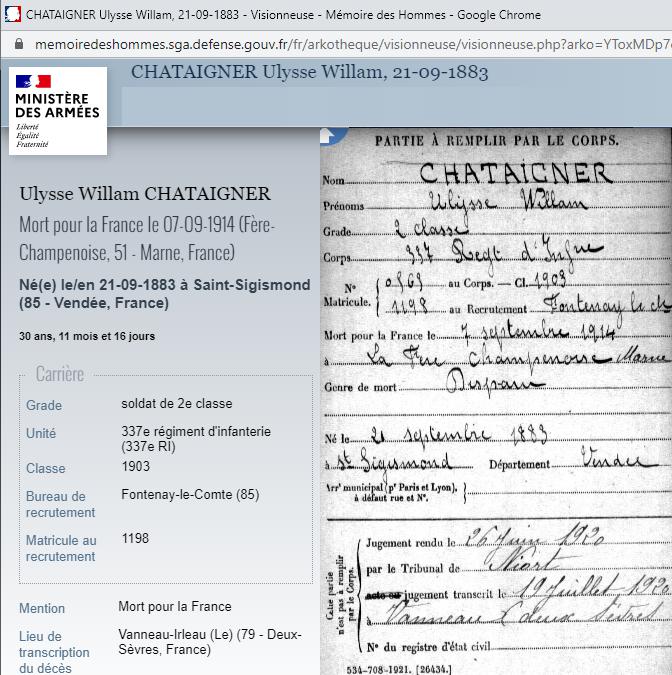 CHATAIGNER Ulysse Willam, 21-09-1883 - Visionneuse - Mémoire des Hommes - Google Chrome
memoiredeshommes.sga.defense.gouv.fr/fr/arkotheque/visionneuse/visionneuse.php?arko=YToxMDp7
CHATAIGNER Ulysse Willam, 21-09-1883
MINISTÈRE
DES ARMÉES
Liberté
Égalité
Fraternité
Ulysse Willam CHATAIGNER
Mort pour la France le 07-09-1914 (Fère-
Champenoise, 51 - Marne, France)
Né(e) le/en 21-09-1883 à Saint-Sigismond
(85 - Vendée, France)
30 ans, 11 mois et 16 jours
Carrière
Grade soldat de 2e classe
Unité 337e régiment d'infanterie
(337e RI)
Classe 1903
Bureau de Fontenay-le-Comte (85)
recrutement
Matricule au 1198
recrutement
Mention Mort pour la France
Lieu de Vanneau-Irleau (Le) (79 - Deux-
transcription Sèvres, France)
du décès
PARTIE À REMPLIR PAR LE CORPS.
Nom CHATAIGNER
Prénoms Ulysse Willam
Grade 2 classe
Corps 337 Regt d'Infrie
N° 0869 au Corps. — Cl. 1903
Matricule. 1198 au Recrutement Fontenay le ch
Mort pour la France le 7 septembre 1914
à La Fère Champenoise Marne
Genre de mort Disparu
Né le 21 septembre 1883
à St Sigismond Département Vendée
Arrt municipal (pr Paris et Lyon),
à défaut rue et N°.
Cette partie
n'est pas à remplir
par le Corps.
Jugement rendu le 26 Juin 1920
par le Tribunal de Niort
acte ou jugement transcrit le 19 Juillet 1920
à Vanneau Deux Sèvres
N° du registre d'état civil
534-708-1921. [26434.]